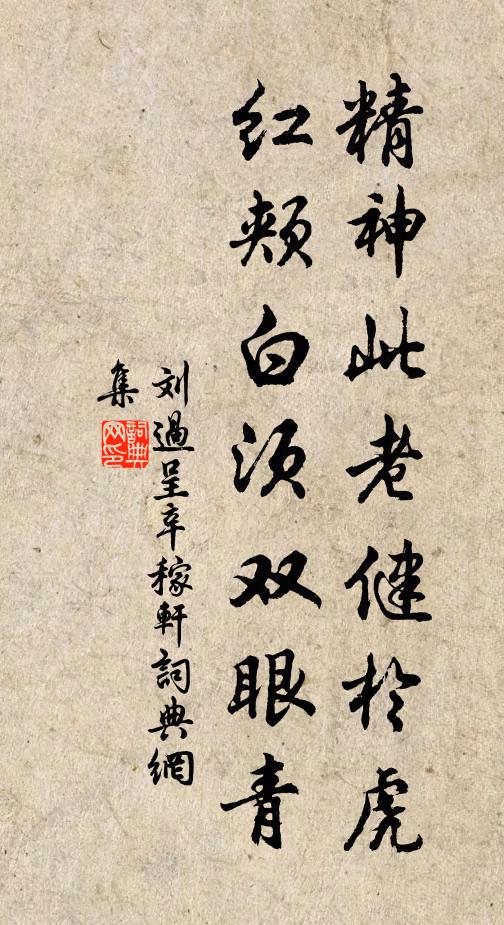 精神此老健於虎
红颊白须双眼青
刘過呈辛稼軒詞典網
集
詞典网印